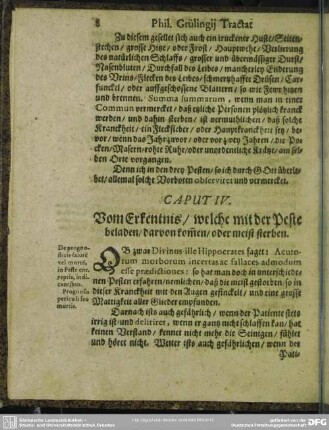 8 Phil. Grülingij Tractat
Zu diesem gesellet sich auch ein truckener Huste/ Seiten-
stechen/ grosse Hitz/ oder Frost/ Hauptwehe/ Verlierung
des natürlichen Schlaffs/ grosser und übermässiger Durst/
Nasenbluten/ Durchfall des Leibes/ mancherley Enderung
des Vrins/ Flecken des Leibes/ schmertzhaffte Drüsen/ Car-
funckel/ oder auffgeschossene Blattern/ so wie Fewr
und brennen. Summa summarum, wenn man in einer
Commun vermercket/ daß etliche Personen plötzlich kranck
werden/ und dahin sterben/ ist vermuthlichen/ daß solche
Kranckheit/ ein Fleckfieber/ oder Hauptkranckheit sey/ be-
vor/ wenn das Jahr zuvor/ oder vor zwey Jahren/ die Po-
cken/ Masern/ rohte Ruhr/ oder unordentliche Krätze/ am sel-
ben Orte vorgangen.
Denn ich in den drey Pesten/ so ich durch G. Ort überle-
bet/ allemal solche Vorboten observiret und vermercket.
CAPUT IV.
Vom Erkentnis/ welche mit der Peste
beladen/ darvon komen/ oder meist sterben.
De progno-
sticis salutê
vel mortê,
in Peste cor-
reptis, indi-
cantibus.
Prognosis
periculi seu
mortis.
OB zwar Divinus ille Hippocrates saget: Acuto-
rum morborum incertas ac fallaces admodum
esse prædictiones: so hat man doch in unterschiede-
nen Pesten erfahren/ nemlichen/ daß die meist gestorben/ so in
dieser Kranckheit mit den Augen gefinckelt/ und eine grosse
Mattigkeit aller Glieder empfunden.
Darnach ists auch gefährlich/ wenn der Patiente stets
irrig ist und deliriret, wenn er gantz nicht schlaffen kan/ hat
keinen Verstand/ kennet nicht mehr die Seinigen/ fühlet
und höret nicht. Weiter ists auch gefährlichen/ wenn der
Pati-